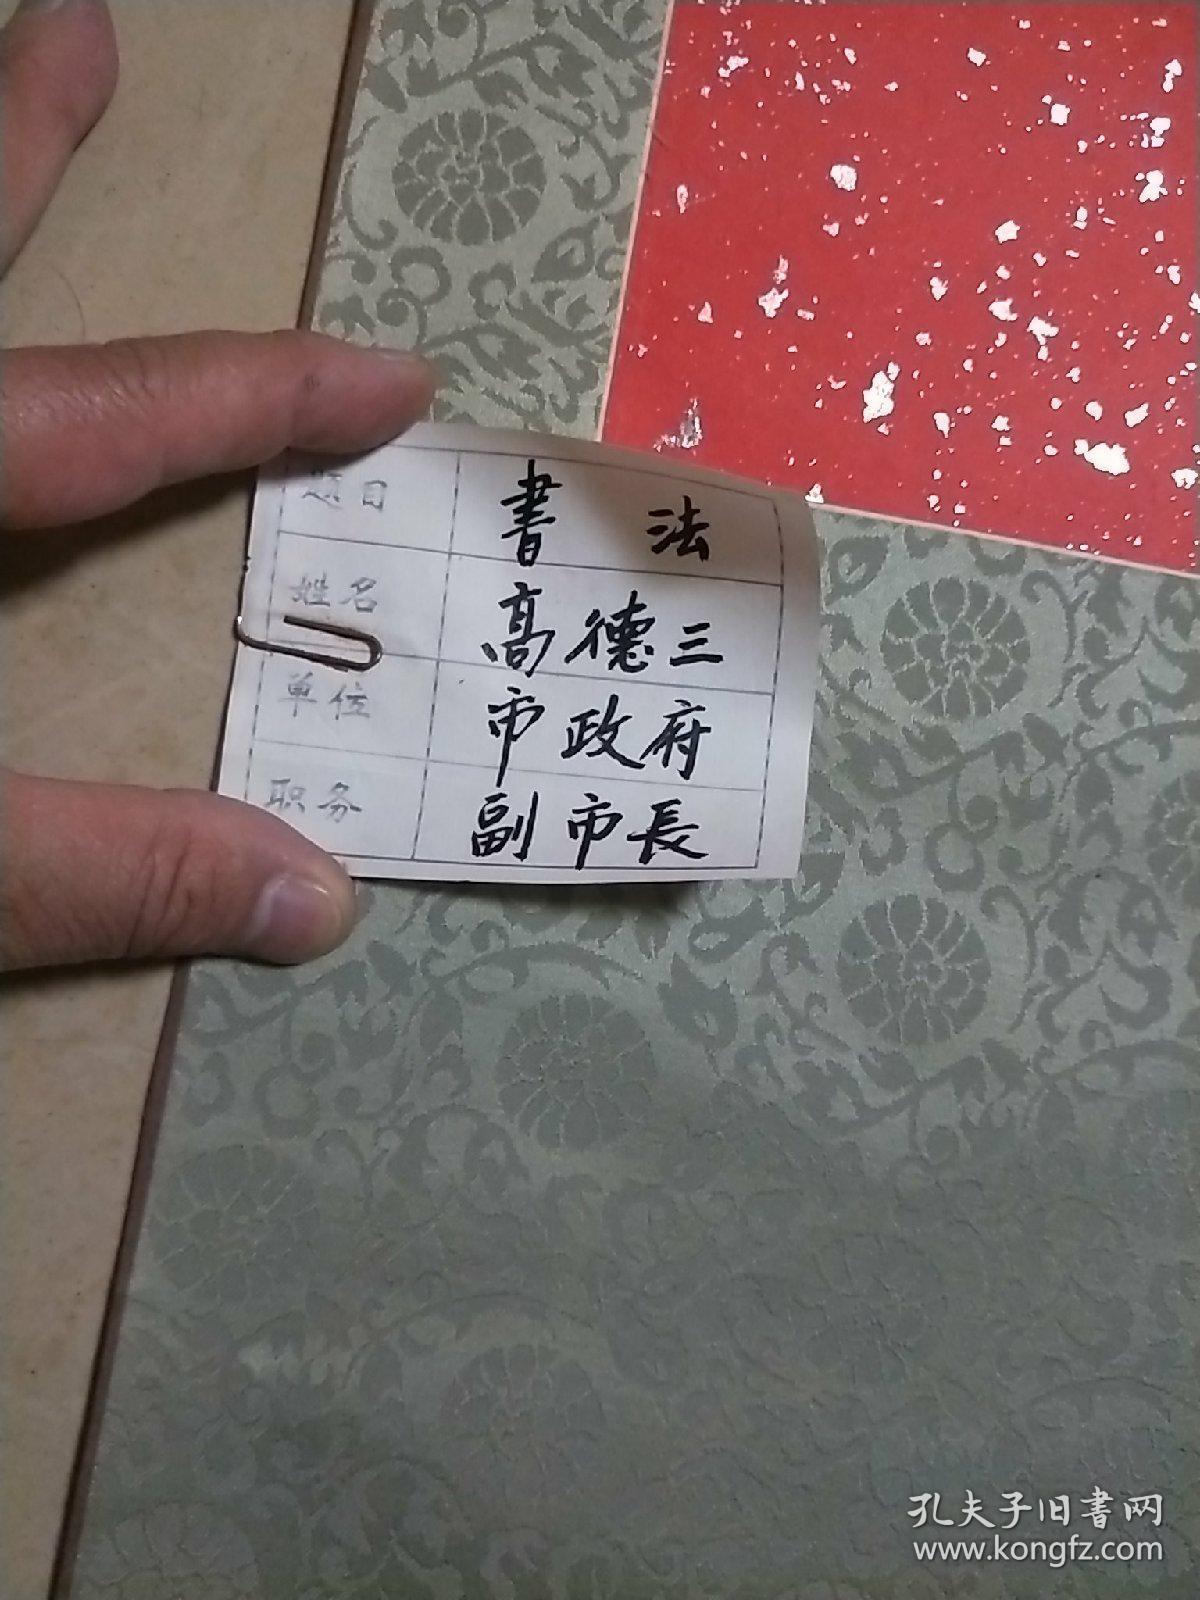 题目 書法
姓名 高德三
单位 市政府
职务 副市長
孔夫子旧書网
www.kongfz.com